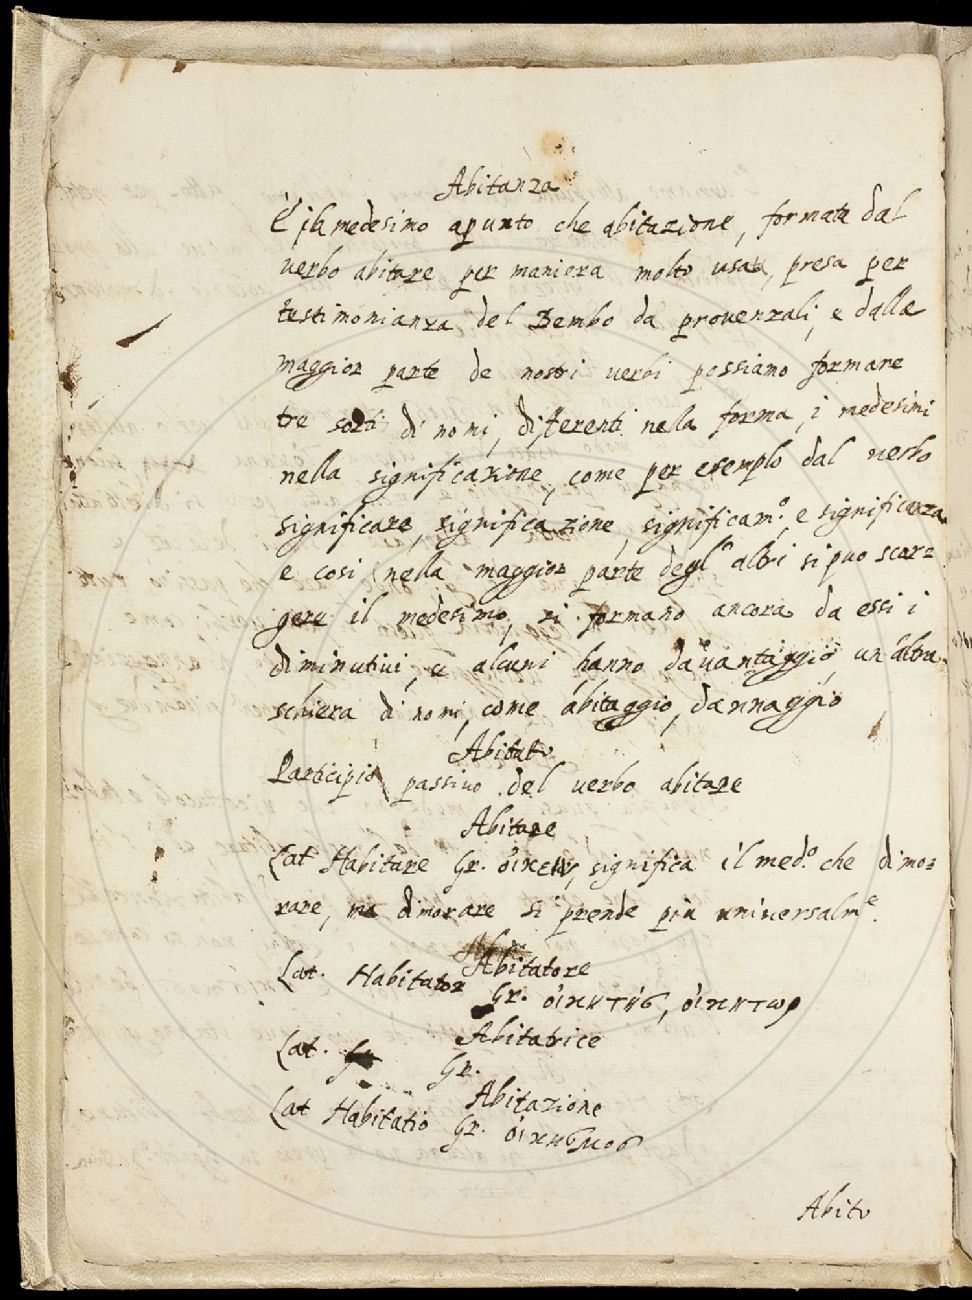 Abitanza
È il medesimo apunto che abitazione, formata dal
verbo abitare per maniera molto usata, presa per
testimonianza del Bembo da prouenzali, e dalla
maggior parte de nostri uerbi possiamo formare
tre sorti di nomi, differenti nella forma, i medesimi
nella significazione, come per esemplo dal uerbo
significare, significazione, significam.º, e significanza
e cosi nella maggior parte degl' altri si puo scor=
gere il medesimo, si formano ancora da essi i
diminutiui, e alcuni hanno dauantaggio un'altra
schiera di nomi, come abitaggio, dannaggio
Abitato
Participio passiuo del uerbo abitare
Abitare
Lat Habitare Gr. οἰκειν, significa il med.º che dimo=
rare, ma dimorare si prende più uniuersalm.e
Abitatore
Lat. Habitator Gr. οἰκητής, οἰκητωρ
Abitatrice
Lat. Gr.
Abitazione
Lat Habitatio Gr. οἰκησμος
Abito